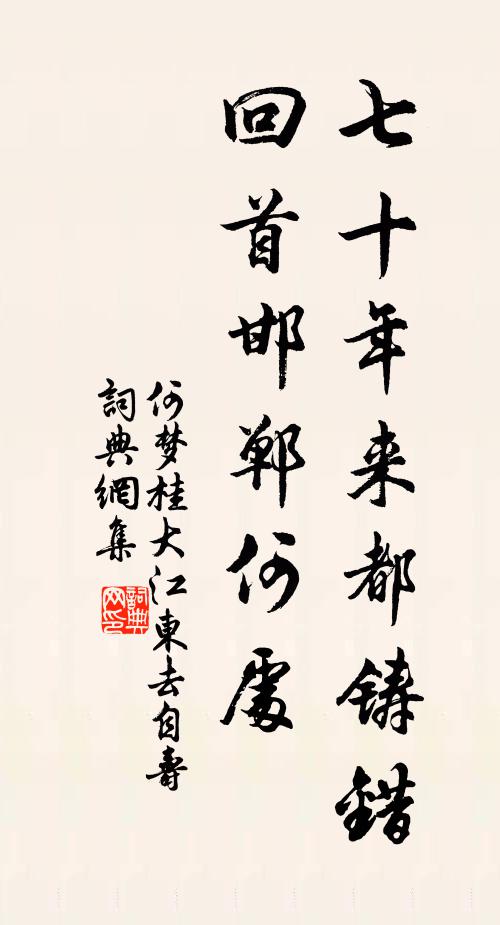 七十年来都鑄錯
回首邯鄲何處
何梦桂大江東去自壽
詞典網集
詞典网印